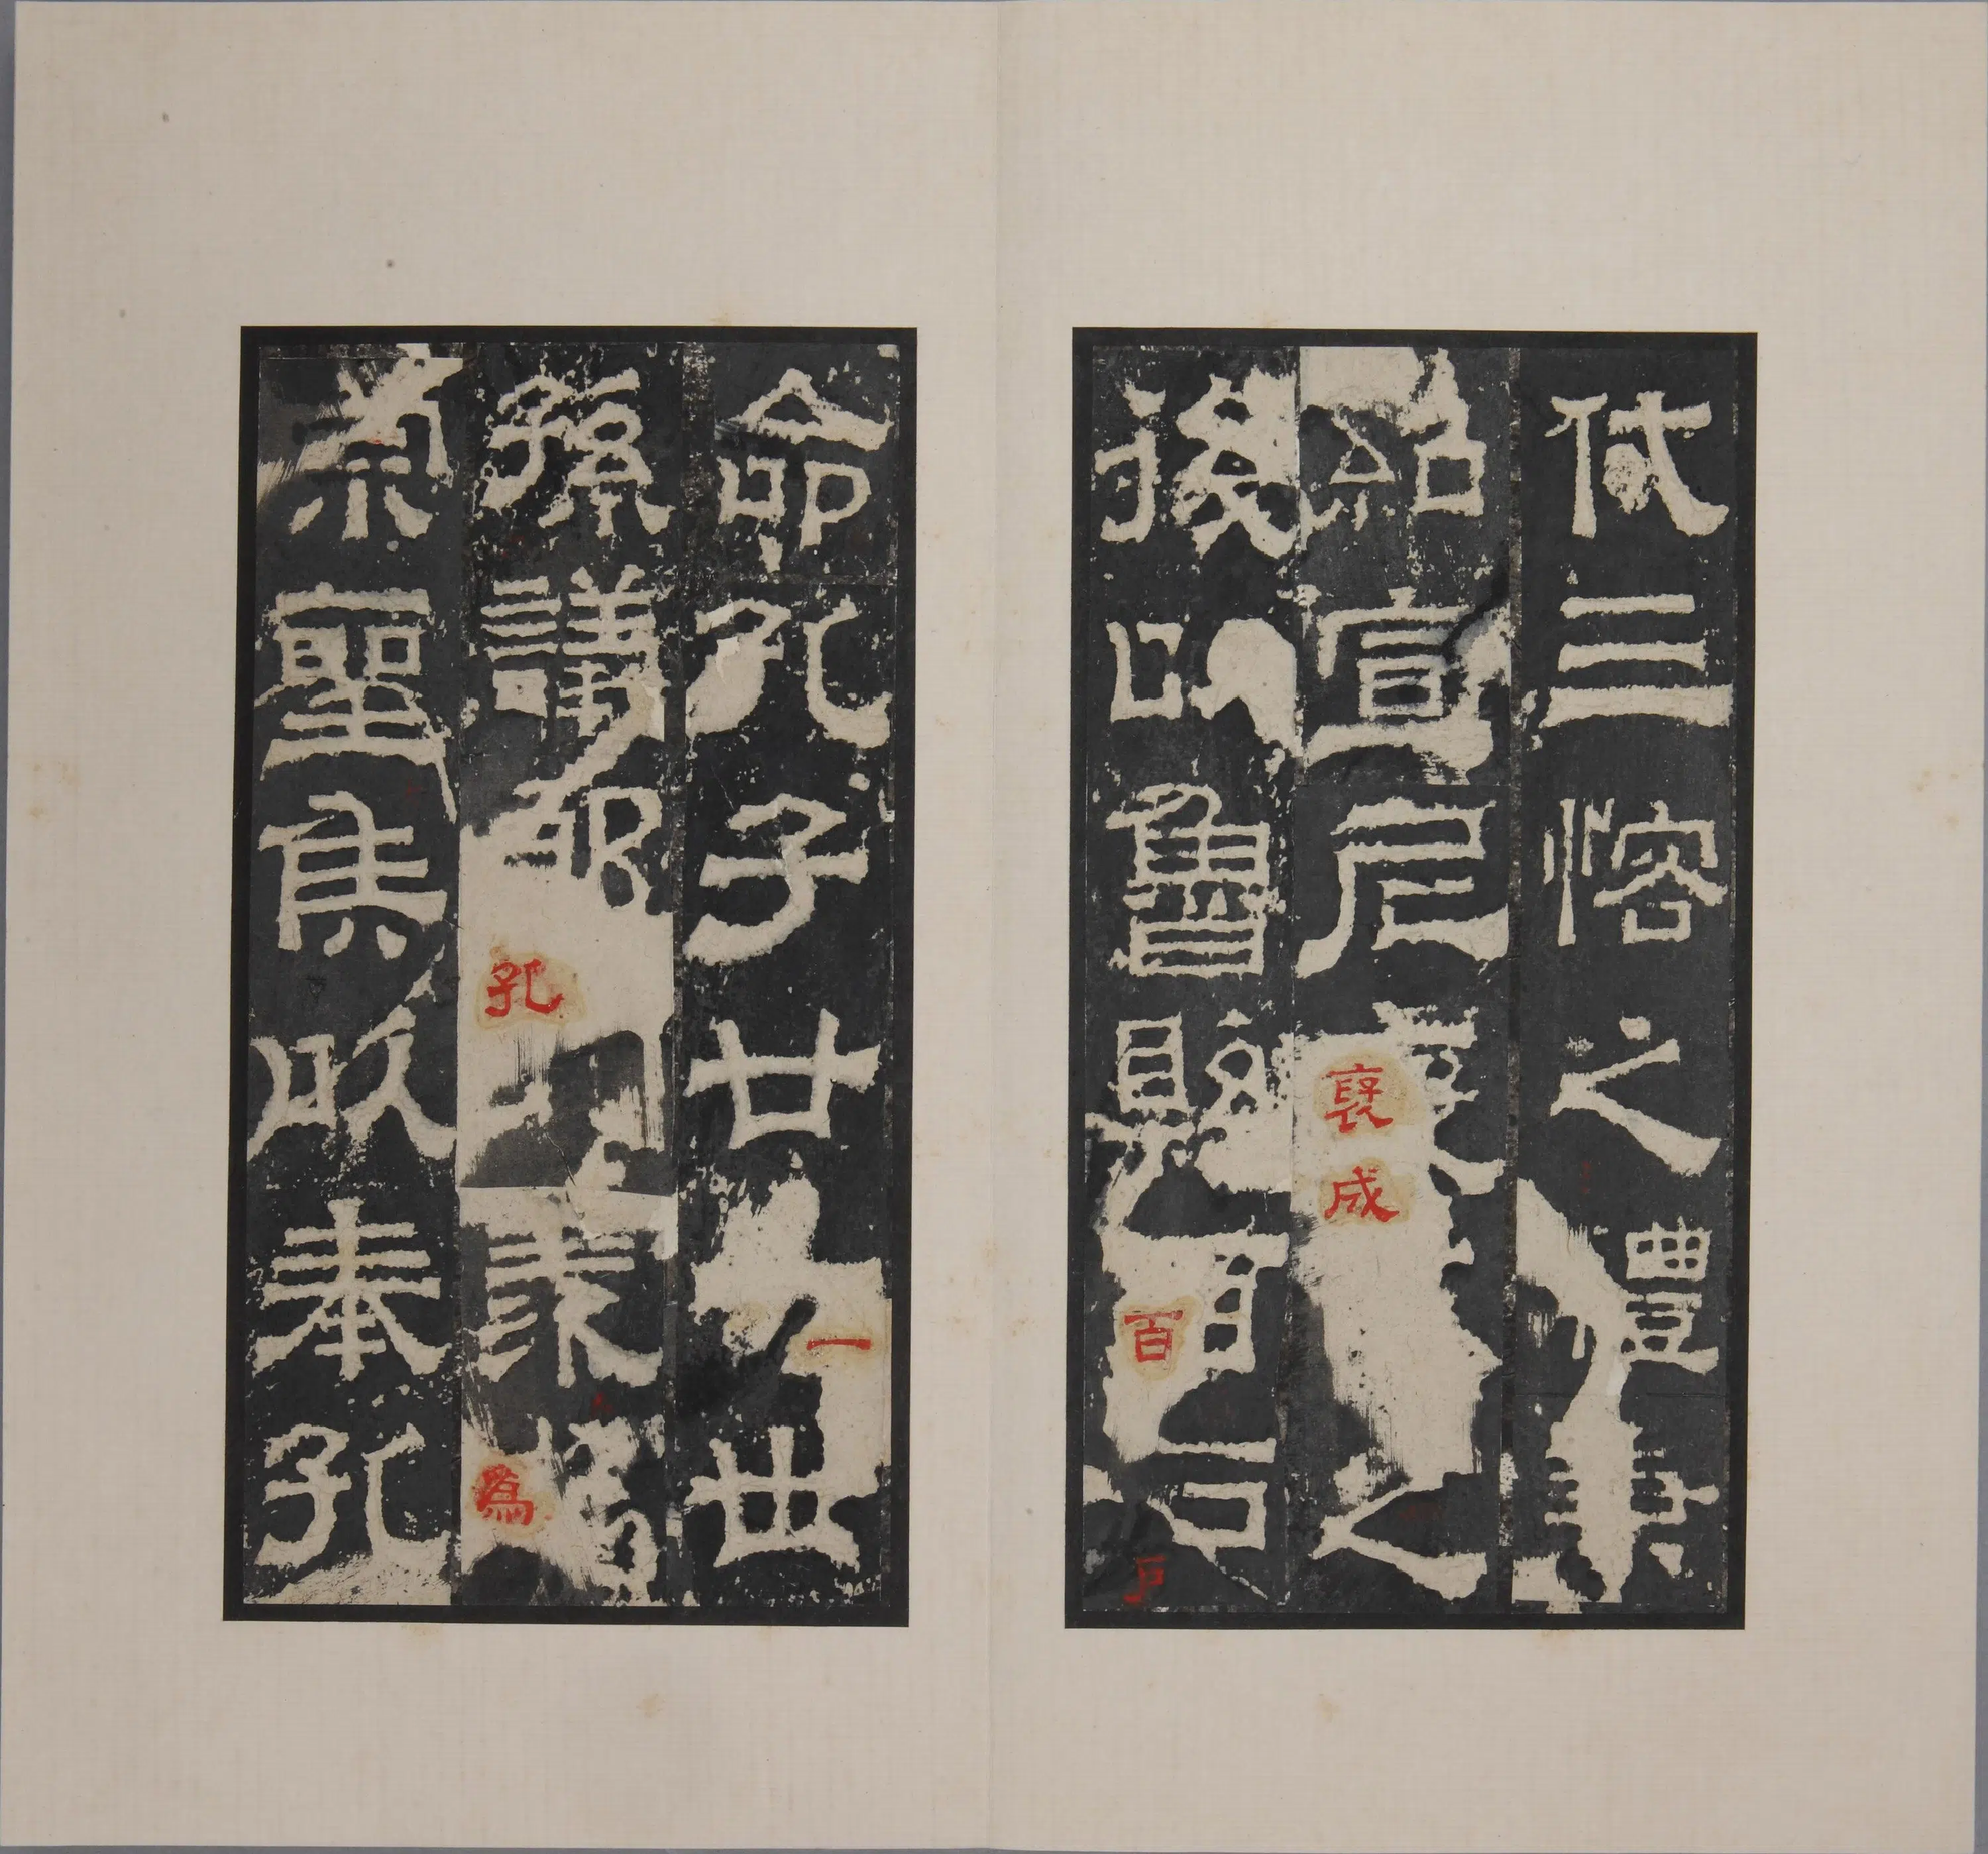 代三愘之禮兼
紹宣尼褒成之
後以魯縣百戶
命孔子廿一世
孫議郎孔羨為
宗聖侯以奉孔